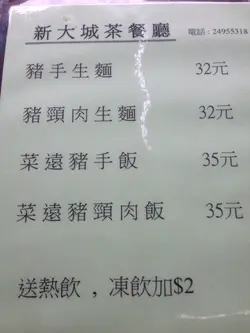 新大城茶餐廳 電話：24955318
豬手生麵 32元
豬頸肉生麵 32元
菜遠豬手飯 35元
菜遠豬頸肉飯 35元
送熱飲，凍飲加$2